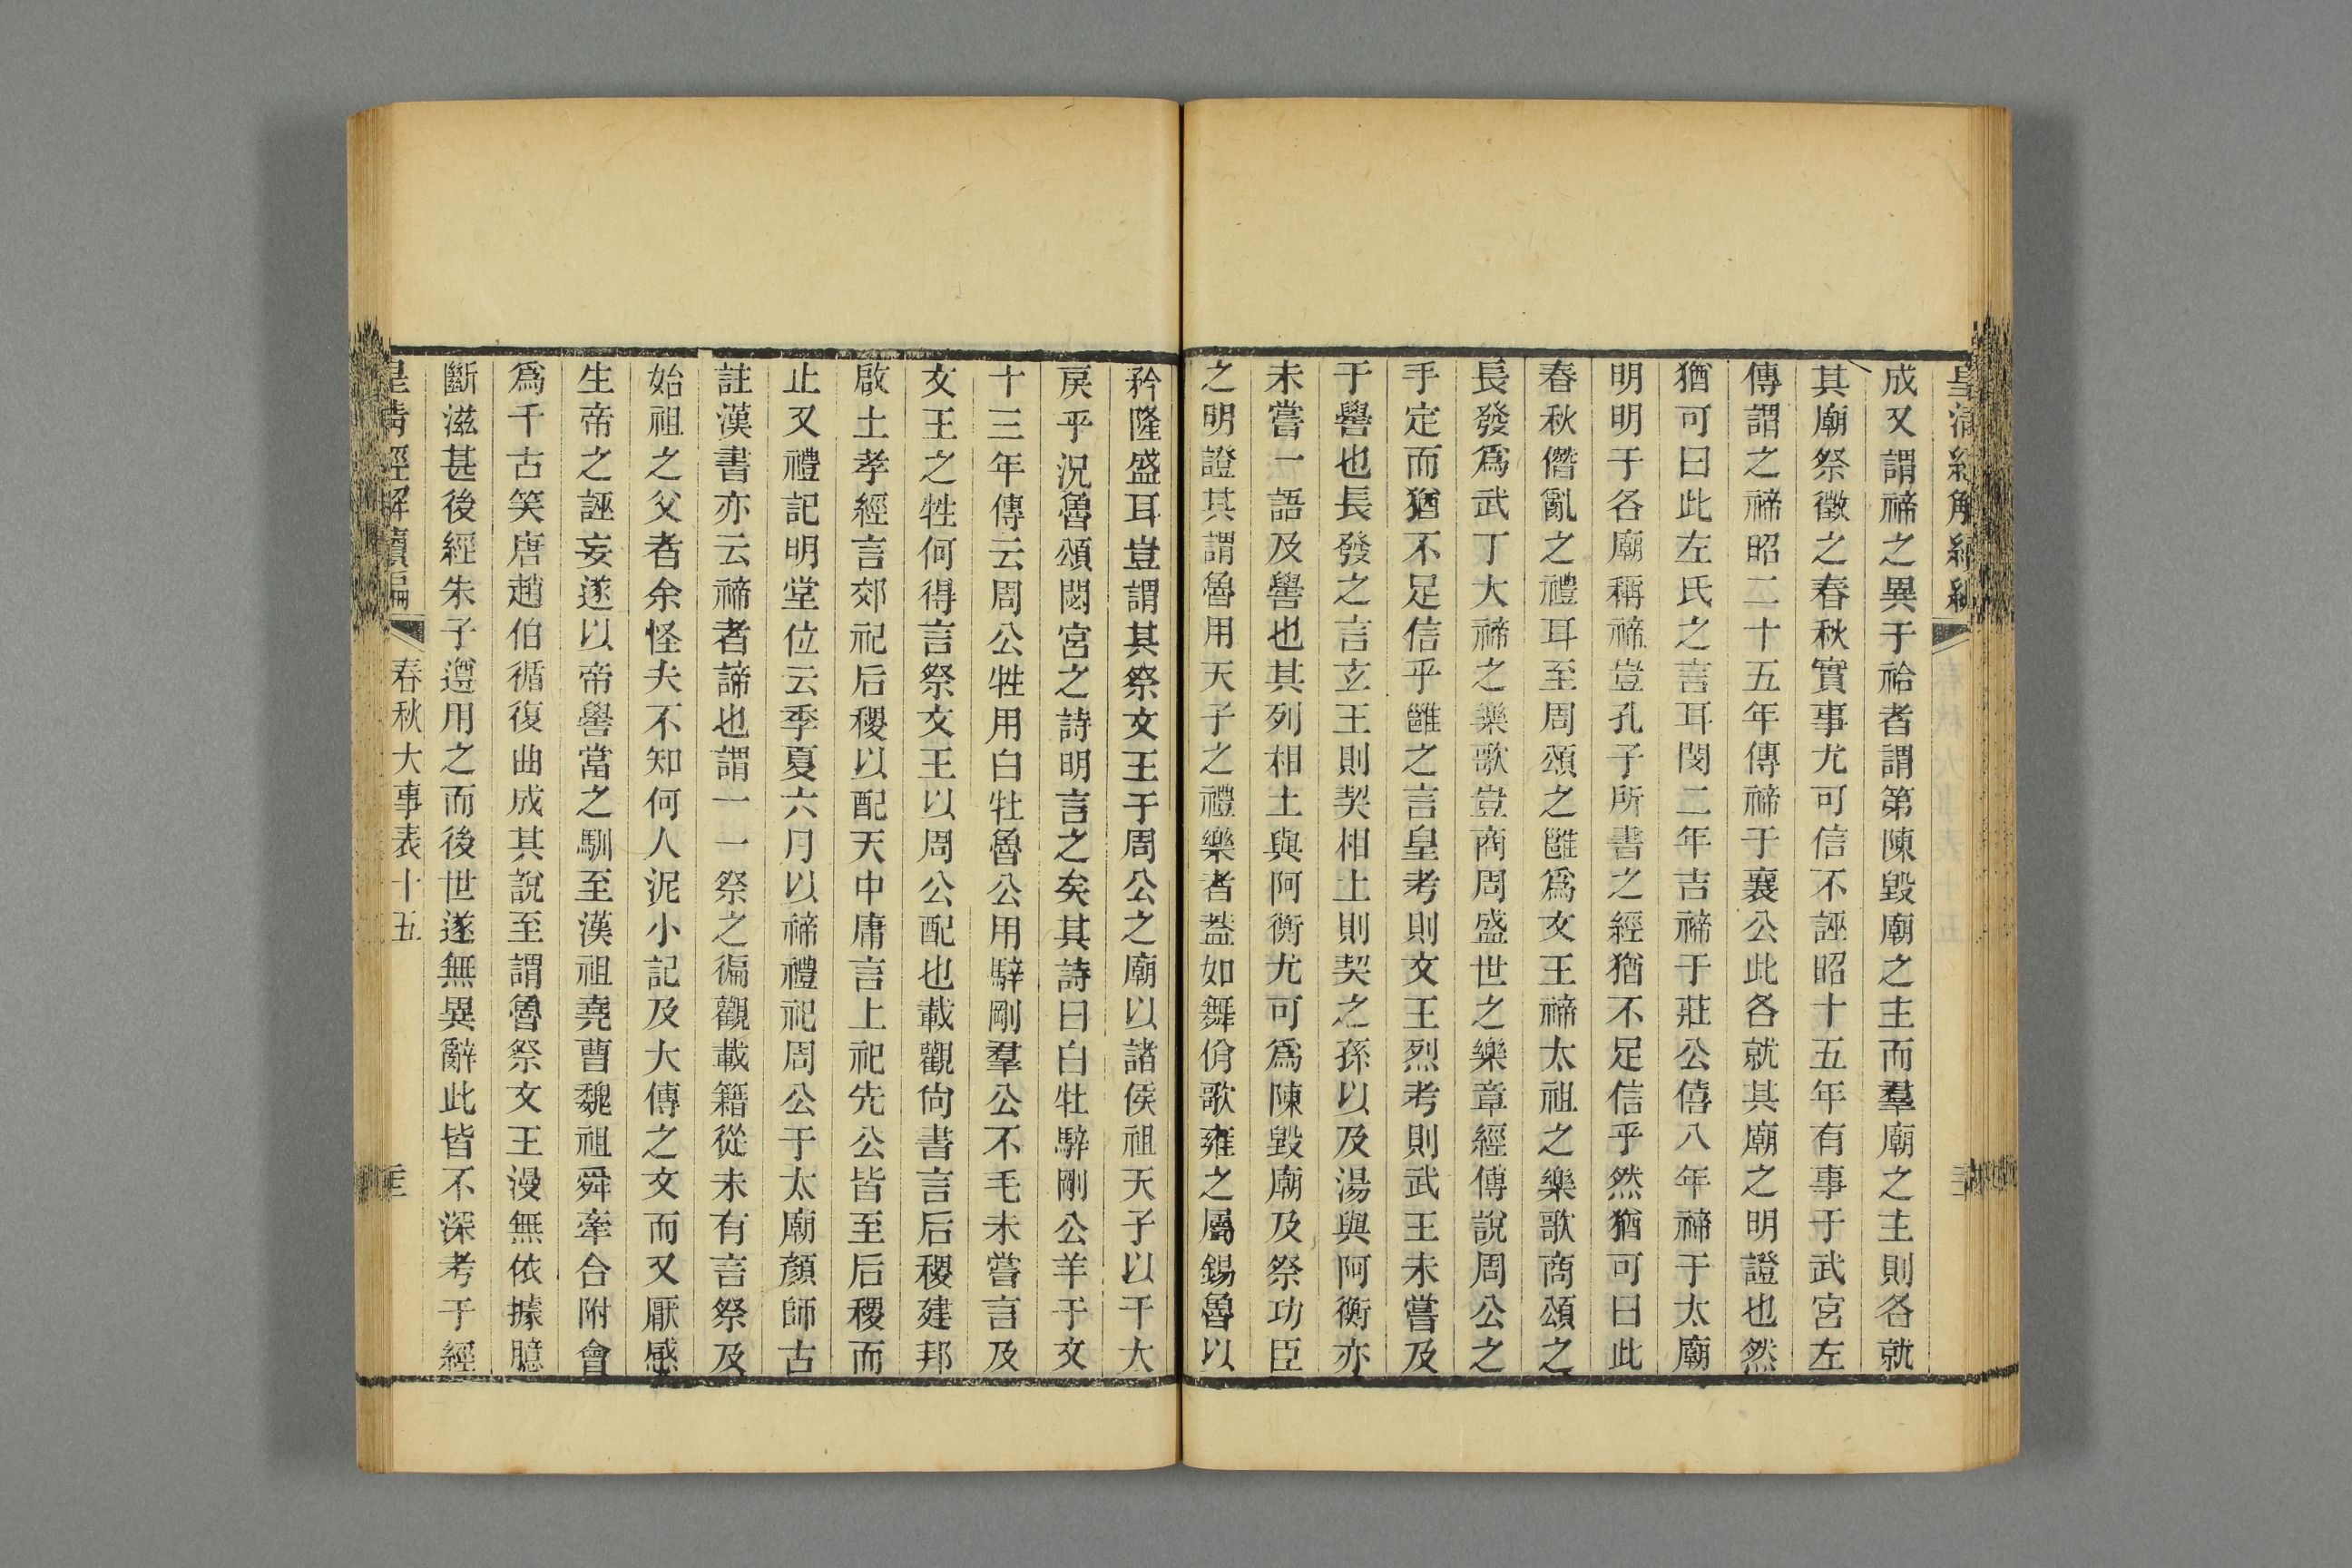 成又謂禘之異于祫者謂第陳毀廟之主而羣廟之主則各就
其廟祭徵之春秋實事尤可信不誣昭十五年有事于武宮左
傳謂之禘昭二十五年傳禘于襄公此各就其廟之明證也然
猶可曰此左氏之言耳閔二年吉禘于莊公僖八年禘于太廟
明明于各廟稱禘豈孔子所書之經猶不足信乎然猶可曰此
春秋僭亂之禮耳至周頌之雝爲文王禘太祖之樂歌商頌之
長發爲武丁大禘之樂歌豈商周盛世之樂章經傳說周公之
手定而猶不足信乎雝之言皇考則文王烈考則武王未嘗及
于嚳也長發之言玄王則契相土則契之孫以及湯與阿衡亦
未嘗一語及嚳也其列相土與阿衡尤可爲陳毀廟及祭功臣
之明證其謂魯用天子之禮樂者蓋如舞佾歌雍之屬錫魯以
矜隆盛耳豈謂其祭文王于周公之廟以諸侯祖天子以干大
戾乎況魯頌閟宮之詩明言之矣其詩曰白牡騂剛公羊于文
十三年傳云周公牲用白牡魯公用騂剛羣公不毛未嘗言及
文王之牲何得言祭文王以周公配也載觀尙書言后稷建邦
啟土孝經言郊祀后稷以配天中庸言上祀先公皆至后稷而
止又禮記明堂位云季夏六月以禘禮祀周公于太廟顏師古
註漢書亦云禘者諦也謂一一祭之徧觀載籍從未有言祭及
始祖之父者余怪夫不知何人泥小記及大傳之文而又厭感
生帝之誣妄遂以帝嚳當之馴至漢祖堯曹魏祖舜牽合附會
爲千古笑唐趙伯循復曲成其說至謂魯祭文王漫無依據臆
斷滋甚後經朱子遵用之而後世遂無異辭此皆不深考于經
皇清經解續編 春秋大事表十五